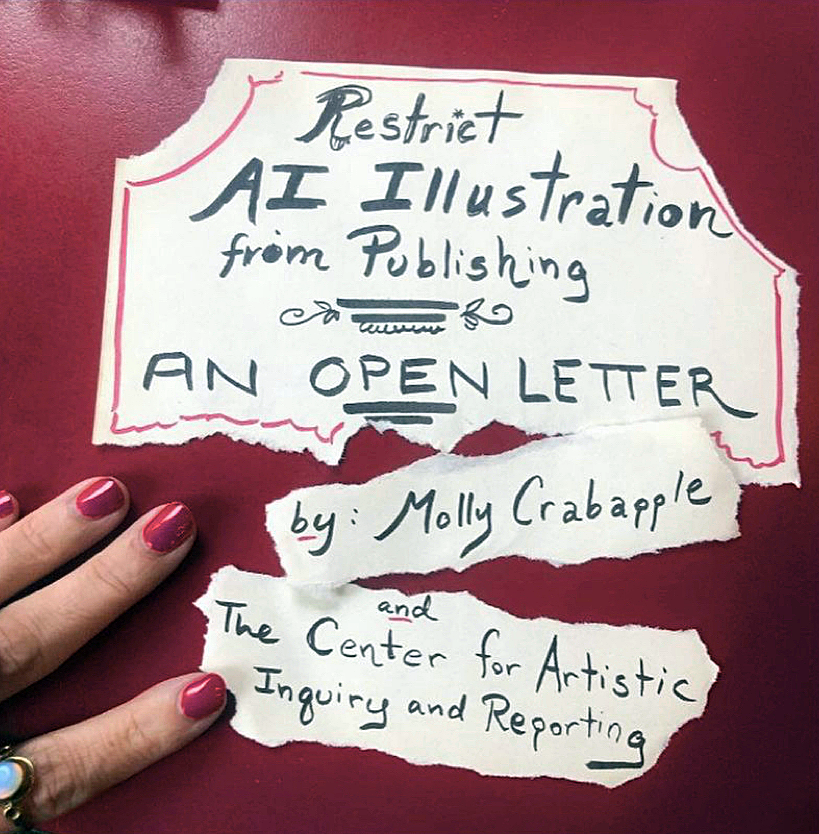 Restrict
AI Illustration
from Publishing
AN OPEN LETTER
by: Molly Crabapple
and
The Center for Artistic
Inquiry and Reporting